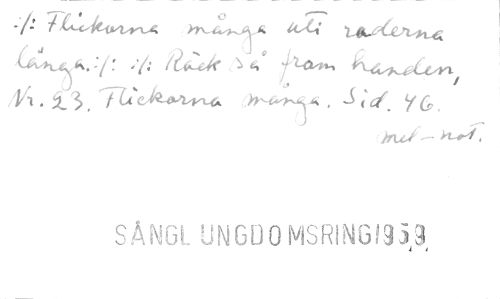 :/: Flickorna många uti raderna
långa.:/: :/: Räck så fram handen,
Nr. 23. Flickorna många. Sid. 46.
mel-not.
SÅNGL UNGDOMSRING 1959